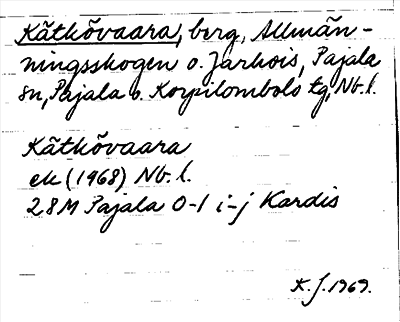 Kätkõvaara, berg, Allmän-
ningsskogen o. Jarhois, Pajala
sn, Pajala o. Korpilombolo tg, Nb. l.
Kätkõvaara
ek (1968) Nb. l.
28M Pajala 0-1 i-j Kardis
K. J. 1969.